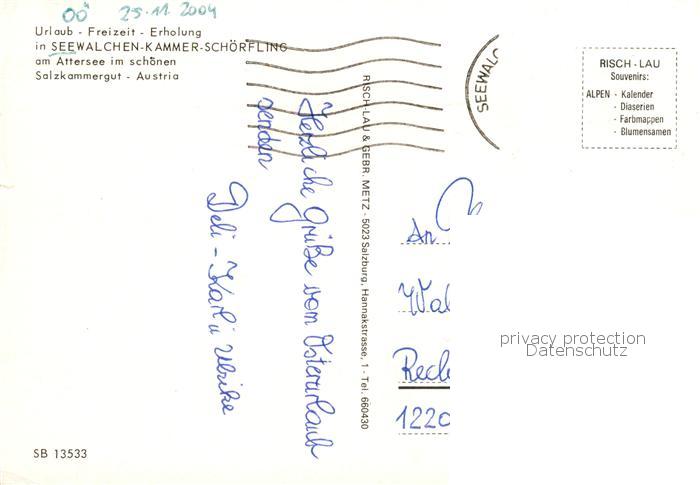 OÖ 25.11.2004
Urlaub - Freizeit - Erholung
in SEEWALCHEN-KAMMER-SCHÖRFLING
am Attersee im schönen
Salzkammergut - Austria
SEEWALC
RISCH - LAU
Souvenirs:
ALPEN - Kalender
- Diaserien
- Farbmappen
- Blumensamen
Herzliche Grüße vom Osterurlaub
senden
Deli - Karl u Ulrike
RISCH-LAU & GEBR. METZ - 5023 Salzburg, Hannakstrasse, 1 - Tel. 660430
An
Wal
Rech
1220
privacy protection
Datenschutz
SB 13533